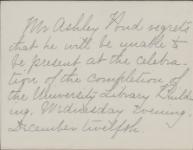 Mr Ashley Pond regrets
that he will be unable to
be present at the celebra-
tion of the completion of
the University Library Build-
ing. Wednesday Evening.
December twelfth